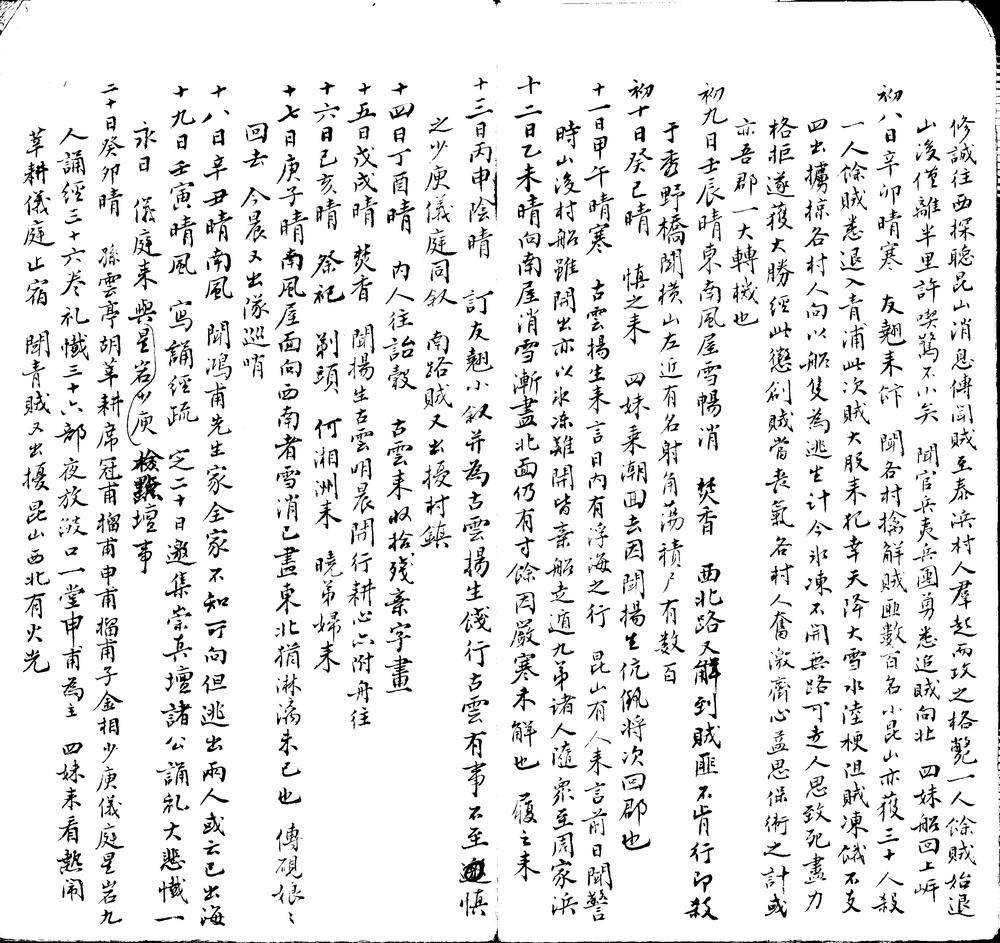 修誠往西探聴昆山消息傳聞賊至泰浜村人羣起而攻之格斃一人餘賊始退
山後僅離半里許喫驚不小矣 聞官兵夷兵團勇悉追賊向北 四妹船回上岸
初八日辛卯晴寒 友翹来作 聞各村擒解賊匪數百名小昆山亦獲三十人殺
一人餘賊悉退入青浦此次賊大股来犯幸天降大雪水陸梗阻賊凍餓不支
四出擄掠各村人向以船隻為逃生計今氷凍不開無路可走人思致死盡力
格拒遂獲大勝經此懲創賊當喪氣各村人奮激齊心益思保衛之計或
亦吾郡一大轉機也
初九日壬辰晴東南風屋雪暢消 焚香 西北路又解到賊匪不肯行即殺
于秀野橋聞橫山左近有名射角蕩積尸有数百
初十日癸巳晴 慎之来 四妹乗潮回去因聞揚生伉儷将次回郡也
十一日甲午晴寒 古雲揚生来言日内有浮海之行 昆山有人来言前日聞警
時山後村船雖開出亦以氷冻難開皆棄船走遁九弟諸人隨衆至周家浜
十二日乙未晴向南屋消雪漸盡北面仍有寸餘因嚴寒未解也 履之来
十三日丙申陰晴 訂友翹小叙并為古雲揚生餞行古雲有事不至慎
之少庚儀庭同叙 南路賊又出擾村鎮
十四日丁酉晴 内人往詒穀 古雲来收拾殘棄字畫
十五日戊戌晴 焚香 聞揚生古雲明晨開行耕心亦附舟往
十六日己亥晴 祭祀 剃頭 何湘洲来 曉弟婦来
十七日庚子晴南風屋面向西南者雪消已盡東北猶淋漓未已也 傳硯娘々
回去 今晨又出隊巡哨
十八日辛丑晴南風 聞鴻甫先生家全家不知可向但逃出兩人或云已出海
十九日壬寅晴風 寫誦經疏 定二十日邀集崇真壇諸公誦礼大悲懺一
永日 儀庭来與星岩少庚檢點壇事
二十日癸卯晴 孫雲亭胡莘耕席冠甫榴甫申甫榴甫子金相少庚儀庭星岩九
人誦經三十六卷礼懺三十六部夜放燄口一堂申甫為主 四妹来看熱鬧
莘耕儀庭止宿 聞青賊又出擾昆山西北有火光